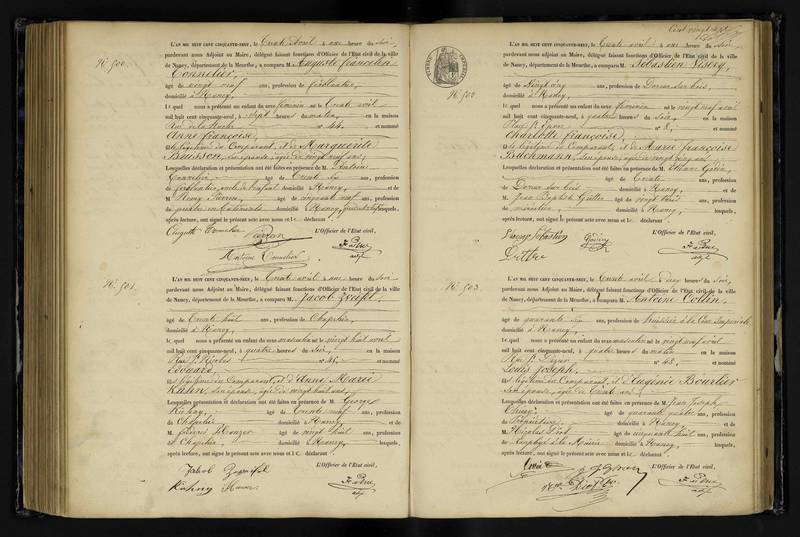 N.° 500.
L'AN MIL HUIT CENT CINQUANTE-NEUF, le trente avril à une heure du soir,
pardevant nous Adjoint au Maire, délégué faisant fonctions d'Officier de l'Etat civil de la ville
de Nancy, département de la Meurthe, a comparu M. Auguste
âgé de vingt neuf ans, profession de ferblantier,
domicilié à Nancy,
lequel nous a présenté un enfant du sexe féminin né le trente avril
mil huit cent cinquante-neuf, à sept heures du matin, en la maison
Rue n° 44, et nommé
Anne françoise,
fille légitime du Comparant, et de Marguerite
Buisson, son épouse, âgée de vingt neuf ans,
Lesquelles déclaration et présentation ont été faites en présence de M. Antoine
âgé de trente ans, profession
de ferblantier, domicilié à Nancy et de
M Remy Pierron âgé de cinquante ans, profession
de domicilié à Nancy, lesquels,
après lecture, ont signé le présent acte avec nous et le déclarant
L'Officier de l'Etat civil,
N.° 501.
L'AN MIL HUIT CENT CINQUANTE-NEUF, le trente avril à une heure du soir
pardevant nous Adjoint au Maire, délégué faisant fonctions d'Officier de l'Etat civil de la ville
de Nancy, département de la Meurthe, a comparu M. Jacob
âgé de trente huit ans, profession de Chapelier,
domicilié à Nancy,
lequel nous a présenté un enfant du sexe masculin né le vingt huit avril
mil huit cent cinquante-neuf, à quatre heures du soir, en la maison
Rue St Nicolas n° 45, et nommé
Edouard,
fils légitime du Comparant, et d'Anne Marie
Kahn, son épouse, âgée de vingt huit ans,
Lesquelles déclaration et présentation ont été faites en présence de M. George
Kahny, âgé de trente neuf ans, profession
de Chapelier domicilié à Nancy et de
M âgé de vingt huit ans, profession
de Chapelier, domicilié à Nancy, lesquels,
après lecture, ont signé le présent acte avec nous et le déclarant
L'Officier de l'Etat civil,
Jakob
Kahny
Cent vingt sept
N.° 502
L'AN MIL HUIT CENT CINQUANTE-NEUF, le trente avril à une heure du soir
pardevant nous Adjoint au Maire, délégué faisant fonctions d'Officier de l'Etat civil de la ville
de Nancy, département de la Meurthe, a comparu M. Sébastien
âgé de vingt cinq ans, profession de Doreur sur bois,
domicilié à Nancy,
lequel nous a présenté un enfant du sexe féminin né le vingt neuf avril
mil huit cent cinquante-neuf, à quatre heures du soir, en la maison
Place St Epvre n° 8, et nommé
Charlotte françoise,
fille légitime du Comparant, et de Marie françoise
Bachmann, son épouse, âgée de vingt cinq ans
Lesquelles déclaration et présentation ont été faites en présence de M. Godin,
âgé de trente ans, profession
de Doreur sur bois domicilié à Nancy et de
M Jean Baptiste âgé de vingt trois ans, profession
de menuisier domicilié à Nancy lesquels,
après lecture, ont signé le présent acte avec nous et le déclarant
L'Officier de l'Etat civil,
Godin
N.° 503
L'AN MIL HUIT CENT CINQUANTE-NEUF, le trente avril à deux heures du soir,
pardevant nous Adjoint au Maire, délégué faisant fonctions d'Officier de l'Etat civil de la ville
de Nancy, département de la Meurthe, a comparu M. Antoine Collin
âgé de quarante six ans, profession de huissier à la Cour Impériale
domicilié à Nancy,
lequel nous a présenté un enfant du sexe masculin né le vingt neuf avril
mil huit cent cinquante-neuf, à quatre heures du matin en la maison
Rue St Dizier n° 48, et nommé
Louis Joseph,
fils légitime du Comparant, et d'Eugénie Bourlier
son épouse, âgée de trente ans
Lesquelles déclaration et présentation ont été faites en présence de M. Jean Joseph
âgé de quarante quatre ans, profession
de Propriétaire domicilié à Nancy et de
M Nicolas âgé de cinquante huit ans, profession
de Employé à la Mairie domicilié à Nancy lesquels,
après lecture, ont signé le présent acte avec nous et le déclarant
L'Officier de l'Etat civil,